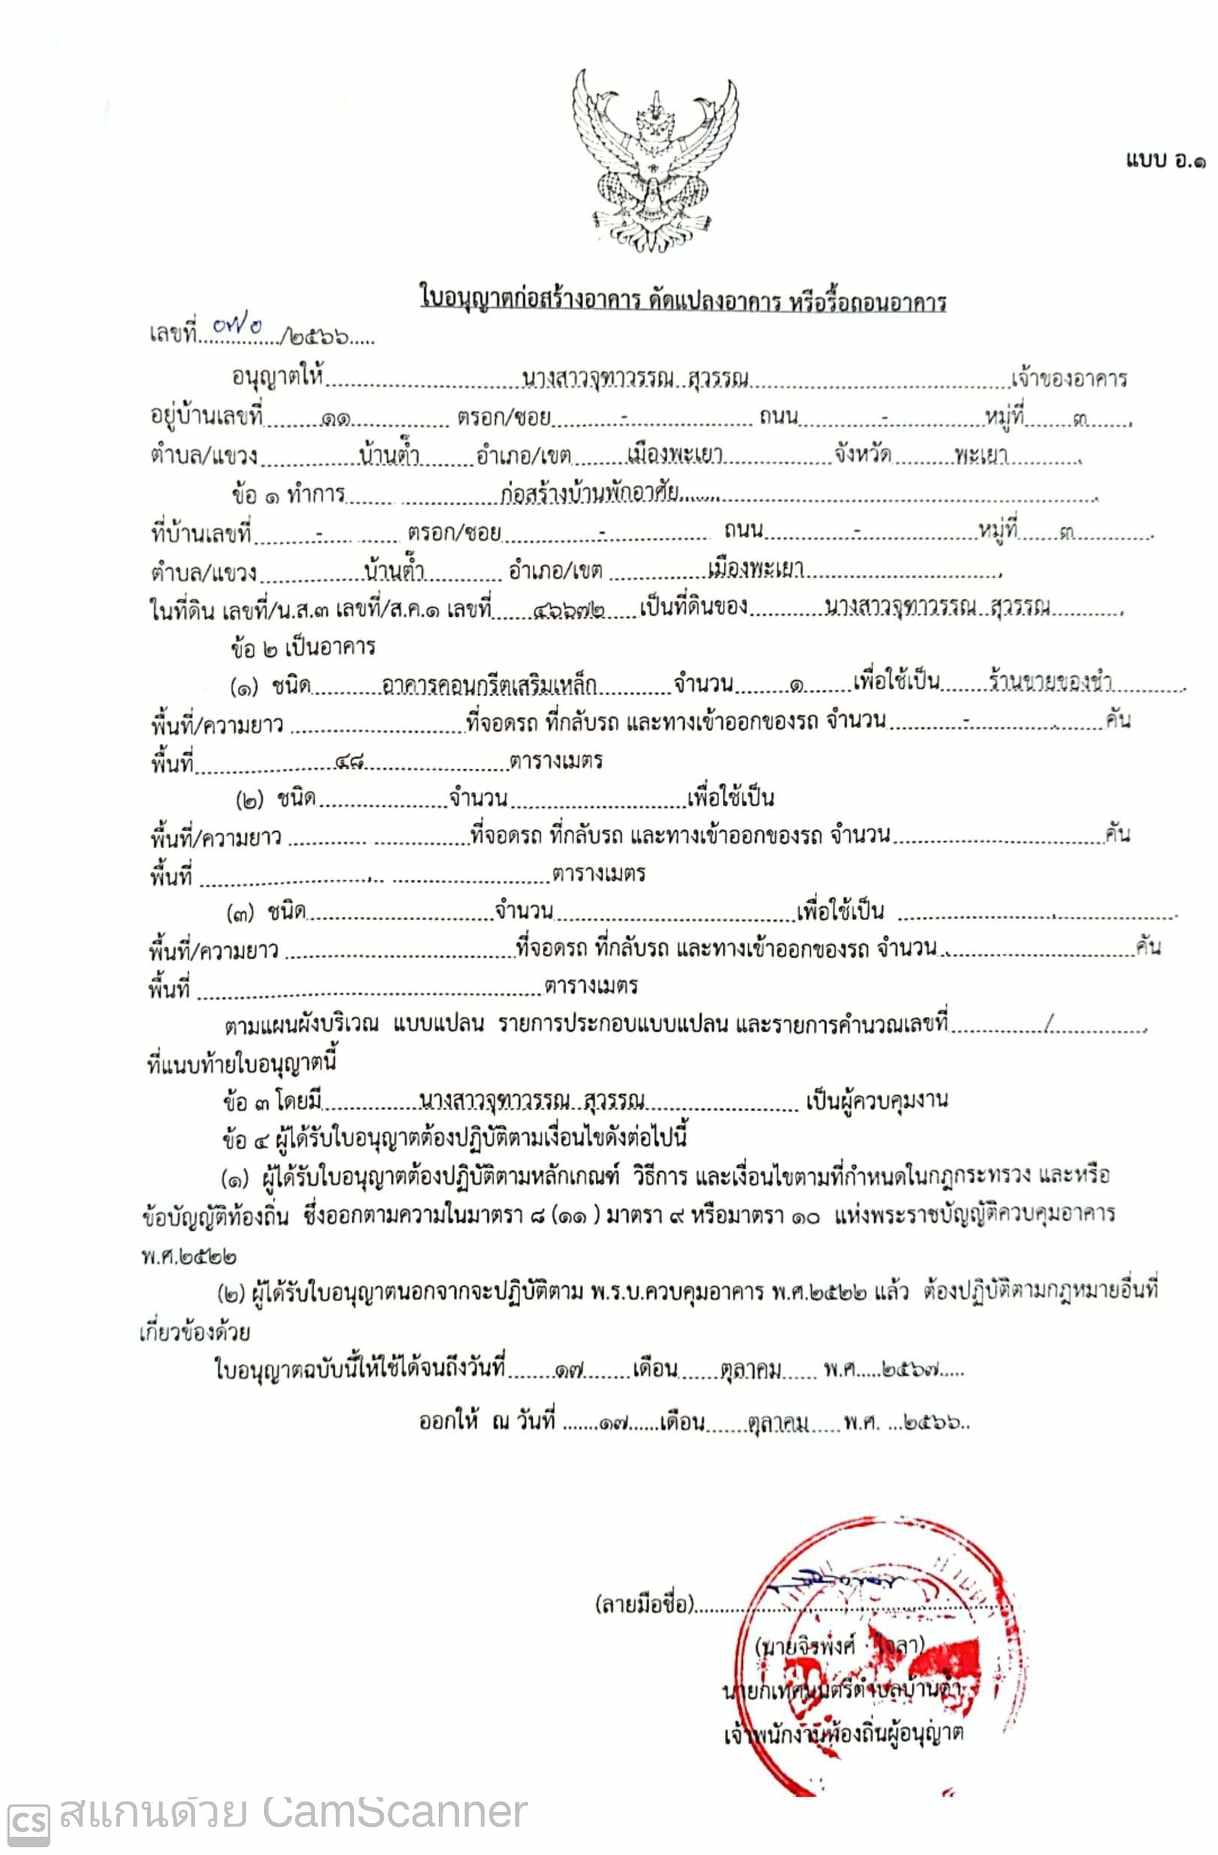 แบบ อ.๑
ใบอนุญาตก่อสร้างอาคาร ดัดแปลงอาคาร หรือรื้อถอนอาคาร
เลขที่..๐๗๐../๒๕๖๖.....
อนุญาตให้..........นางสาวจุฑาวรรณ สุวรรณ..........เจ้าของอาคาร
อยู่บ้านเลขที่.......๑๑....... ตรอก/ซอย.......-....... ถนน.......-.......หมู่ที่.....๓.....
ตำบล/แขวง.......บ้านต๊ำ.......อำเภอ/เขต.......เมืองพะเยา.......จังหวัด.......พะเยา.......
ข้อ ๑ ทำการ..........ก่อสร้างบ้านพักอาศัย..........
ที่บ้านเลขที่.......-....... ตรอก/ซอย.......-....... ถนน.......-.......หมู่ที่.....๓.....
ตำบล/แขวง.......บ้านต๊ำ....... อำเภอ/เขต .......เมืองพะเยา.......
ในที่ดิน เลขที่/น.ส.๓ เลขที่/ส.ค.๑ เลขที่.....๔๖๖๗๒.....เป็นที่ดินของ.......นางสาวจุฑาวรรณ สุวรรณ.......
ข้อ ๒ เป็นอาคาร
(๑) ชนิด.......อาคารคอนกรีตเสริมเหล็ก.......จำนวน.....๑.....เพื่อใช้เป็น.....ร้านขายของชำ.....
พื้นที่/ความยาว ..........ที่จอดรถ ที่กลับรถ และทางเข้าออกของรถ จำนวน.......-.......คัน
พื้นที่..........๔๘..........ตารางเมตร
(๒) ชนิด..........จำนวน..........เพื่อใช้เป็น
พื้นที่/ความยาว ..........ที่จอดรถ ที่กลับรถ และทางเข้าออกของรถ จำนวน..........คัน
พื้นที่ ..........ตารางเมตร
(๓) ชนิด..........จำนวน..........เพื่อใช้เป็น ..........
พื้นที่/ความยาว ..........ที่จอดรถ ที่กลับรถ และทางเข้าออกของรถ จำนวน..........คัน
พื้นที่ ..........ตารางเมตร
ตามแผนผังบริเวณ แบบแปลน รายการประกอบแบบแปลน และรายการคำนวณเลขที่......./.......
ที่แนบท้ายใบอนุญาตนี้
ข้อ ๓ โดยมี.......นางสาวจุฑาวรรณ สุวรรณ....... เป็นผู้ควบคุมงาน
ข้อ ๔ ผู้ได้รับใบอนุญาตต้องปฏิบัติตามเงื่อนไขดังต่อไปนี้
(๑) ผู้ได้รับใบอนุญาตต้องปฏิบัติตามหลักเกณฑ์ วิธีการ และเงื่อนไขตามที่กำหนดในกฎกระทรวง และหรือ
ข้อบัญญัติท้องถิ่น ซึ่งออกตามความในมาตรา ๘ (๑๑ ) มาตรา ๙ หรือมาตรา ๑๐ แห่งพระราชบัญญัติควบคุมอาคาร
พ.ศ.๒๕๒๒
(๒) ผู้ได้รับใบอนุญาตนอกจากจะปฏิบัติตาม พ.ร.บ.ควบคุมอาคาร พ.ศ.๒๕๒๒ แล้ว ต้องปฏิบัติตามกฎหมายอื่นที่
เกี่ยวข้องด้วย
ใบอนุญาตฉบับนี้ให้ใช้ได้จนถึงวันที่.......๑๗.......เดือน......ตุลาคม...... พ.ศ.....๒๕๖๗.....
ออกให้ ณ วันที่ .......๑๗......เดือน.......ตุลาคม.....พ.ศ. ...๒๕๖๖..
(ลายมือชื่อ)....................
(นายจิรพงศ์ ใจลา)
นายกเทศมนตรีตำบลบ้านต๊ำ
เจ้าพนักงานท้องถิ่นผู้อนุญาต
CS สแกนด้วย CamScanner